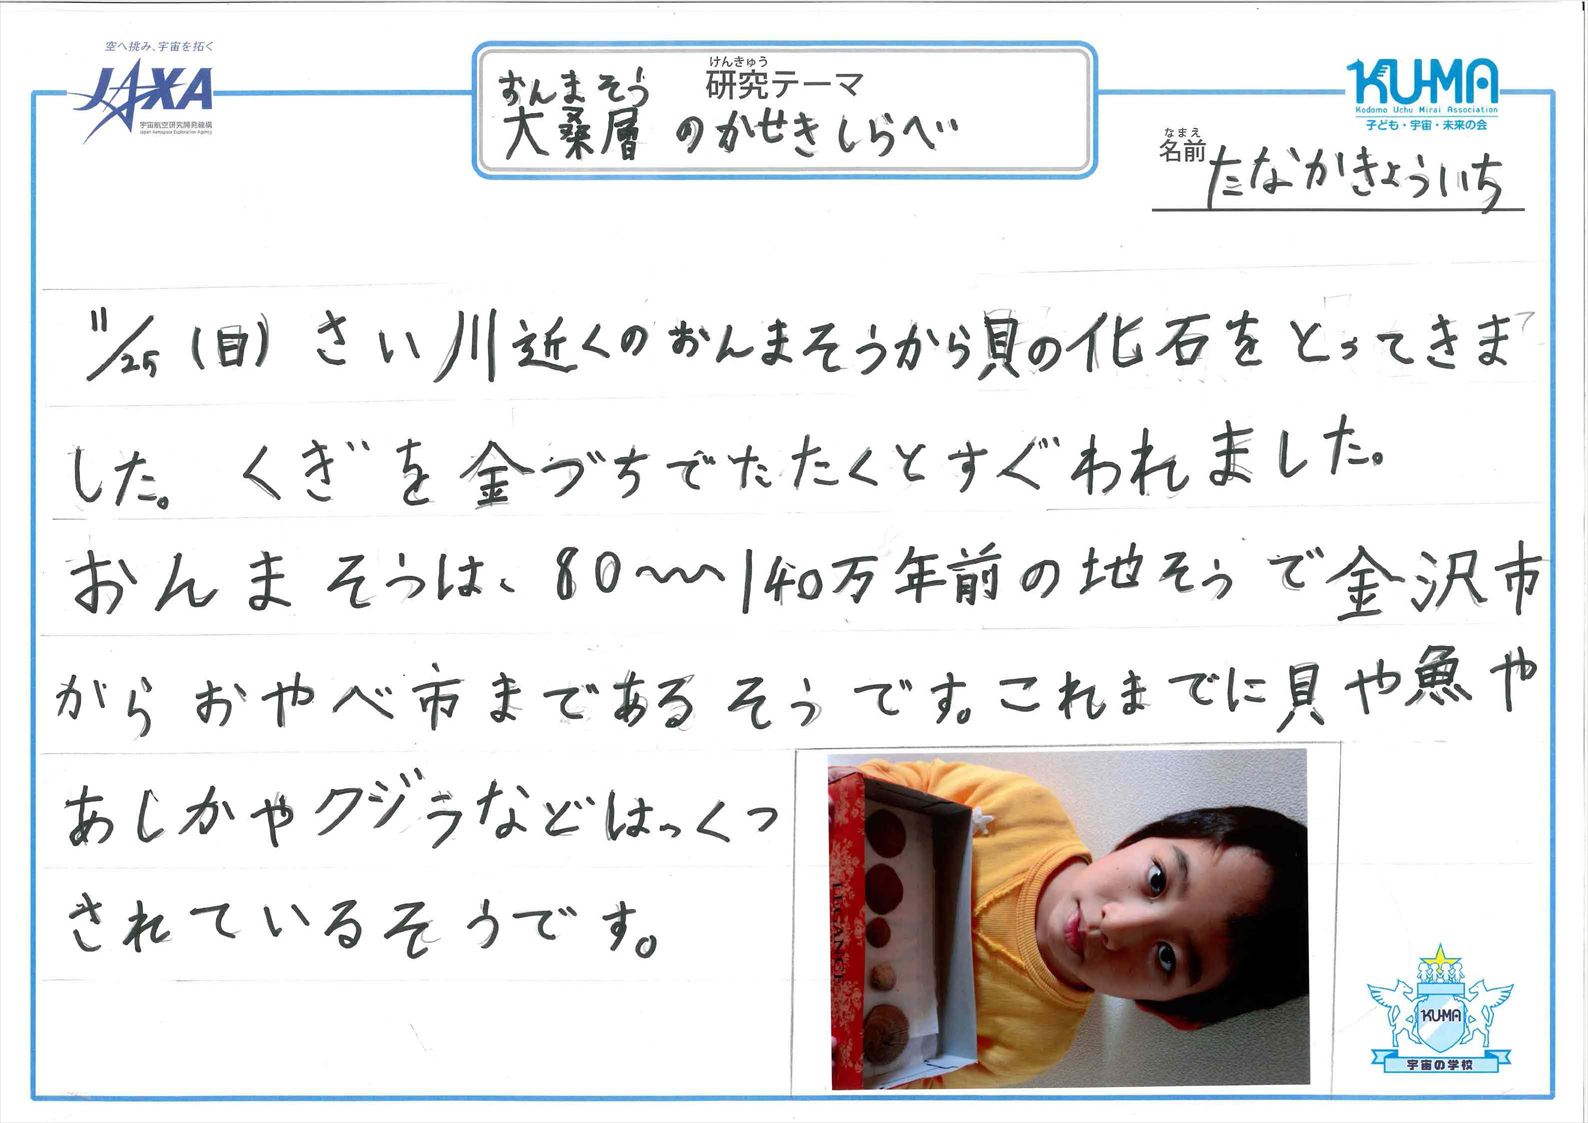 空へ挑み、宇宙を拓く
JAXA
宇宙航空研究開発機構
Japan Aerospace Exploration Agency
けんきゅう
研究テーマ
おんまそう
大桑層のかせきしらべ
KU-MA
Kodomo Uchu Mirai Association
子ども・宇宙・未来の会
なまえ
名前 たなかきょういち
11/25(日)さい川近くのおんまそうから貝の化石をとってきま
した。くぎを金づちでたたくとすぐわれました。
おんまそうは、80〜140万年前の地そうで金沢市
からおやべ市まであるそうです。これまでに貝や魚や
あしかやクジラなどはっくつ
されているそうです。
KU-MA
宇宙の学校